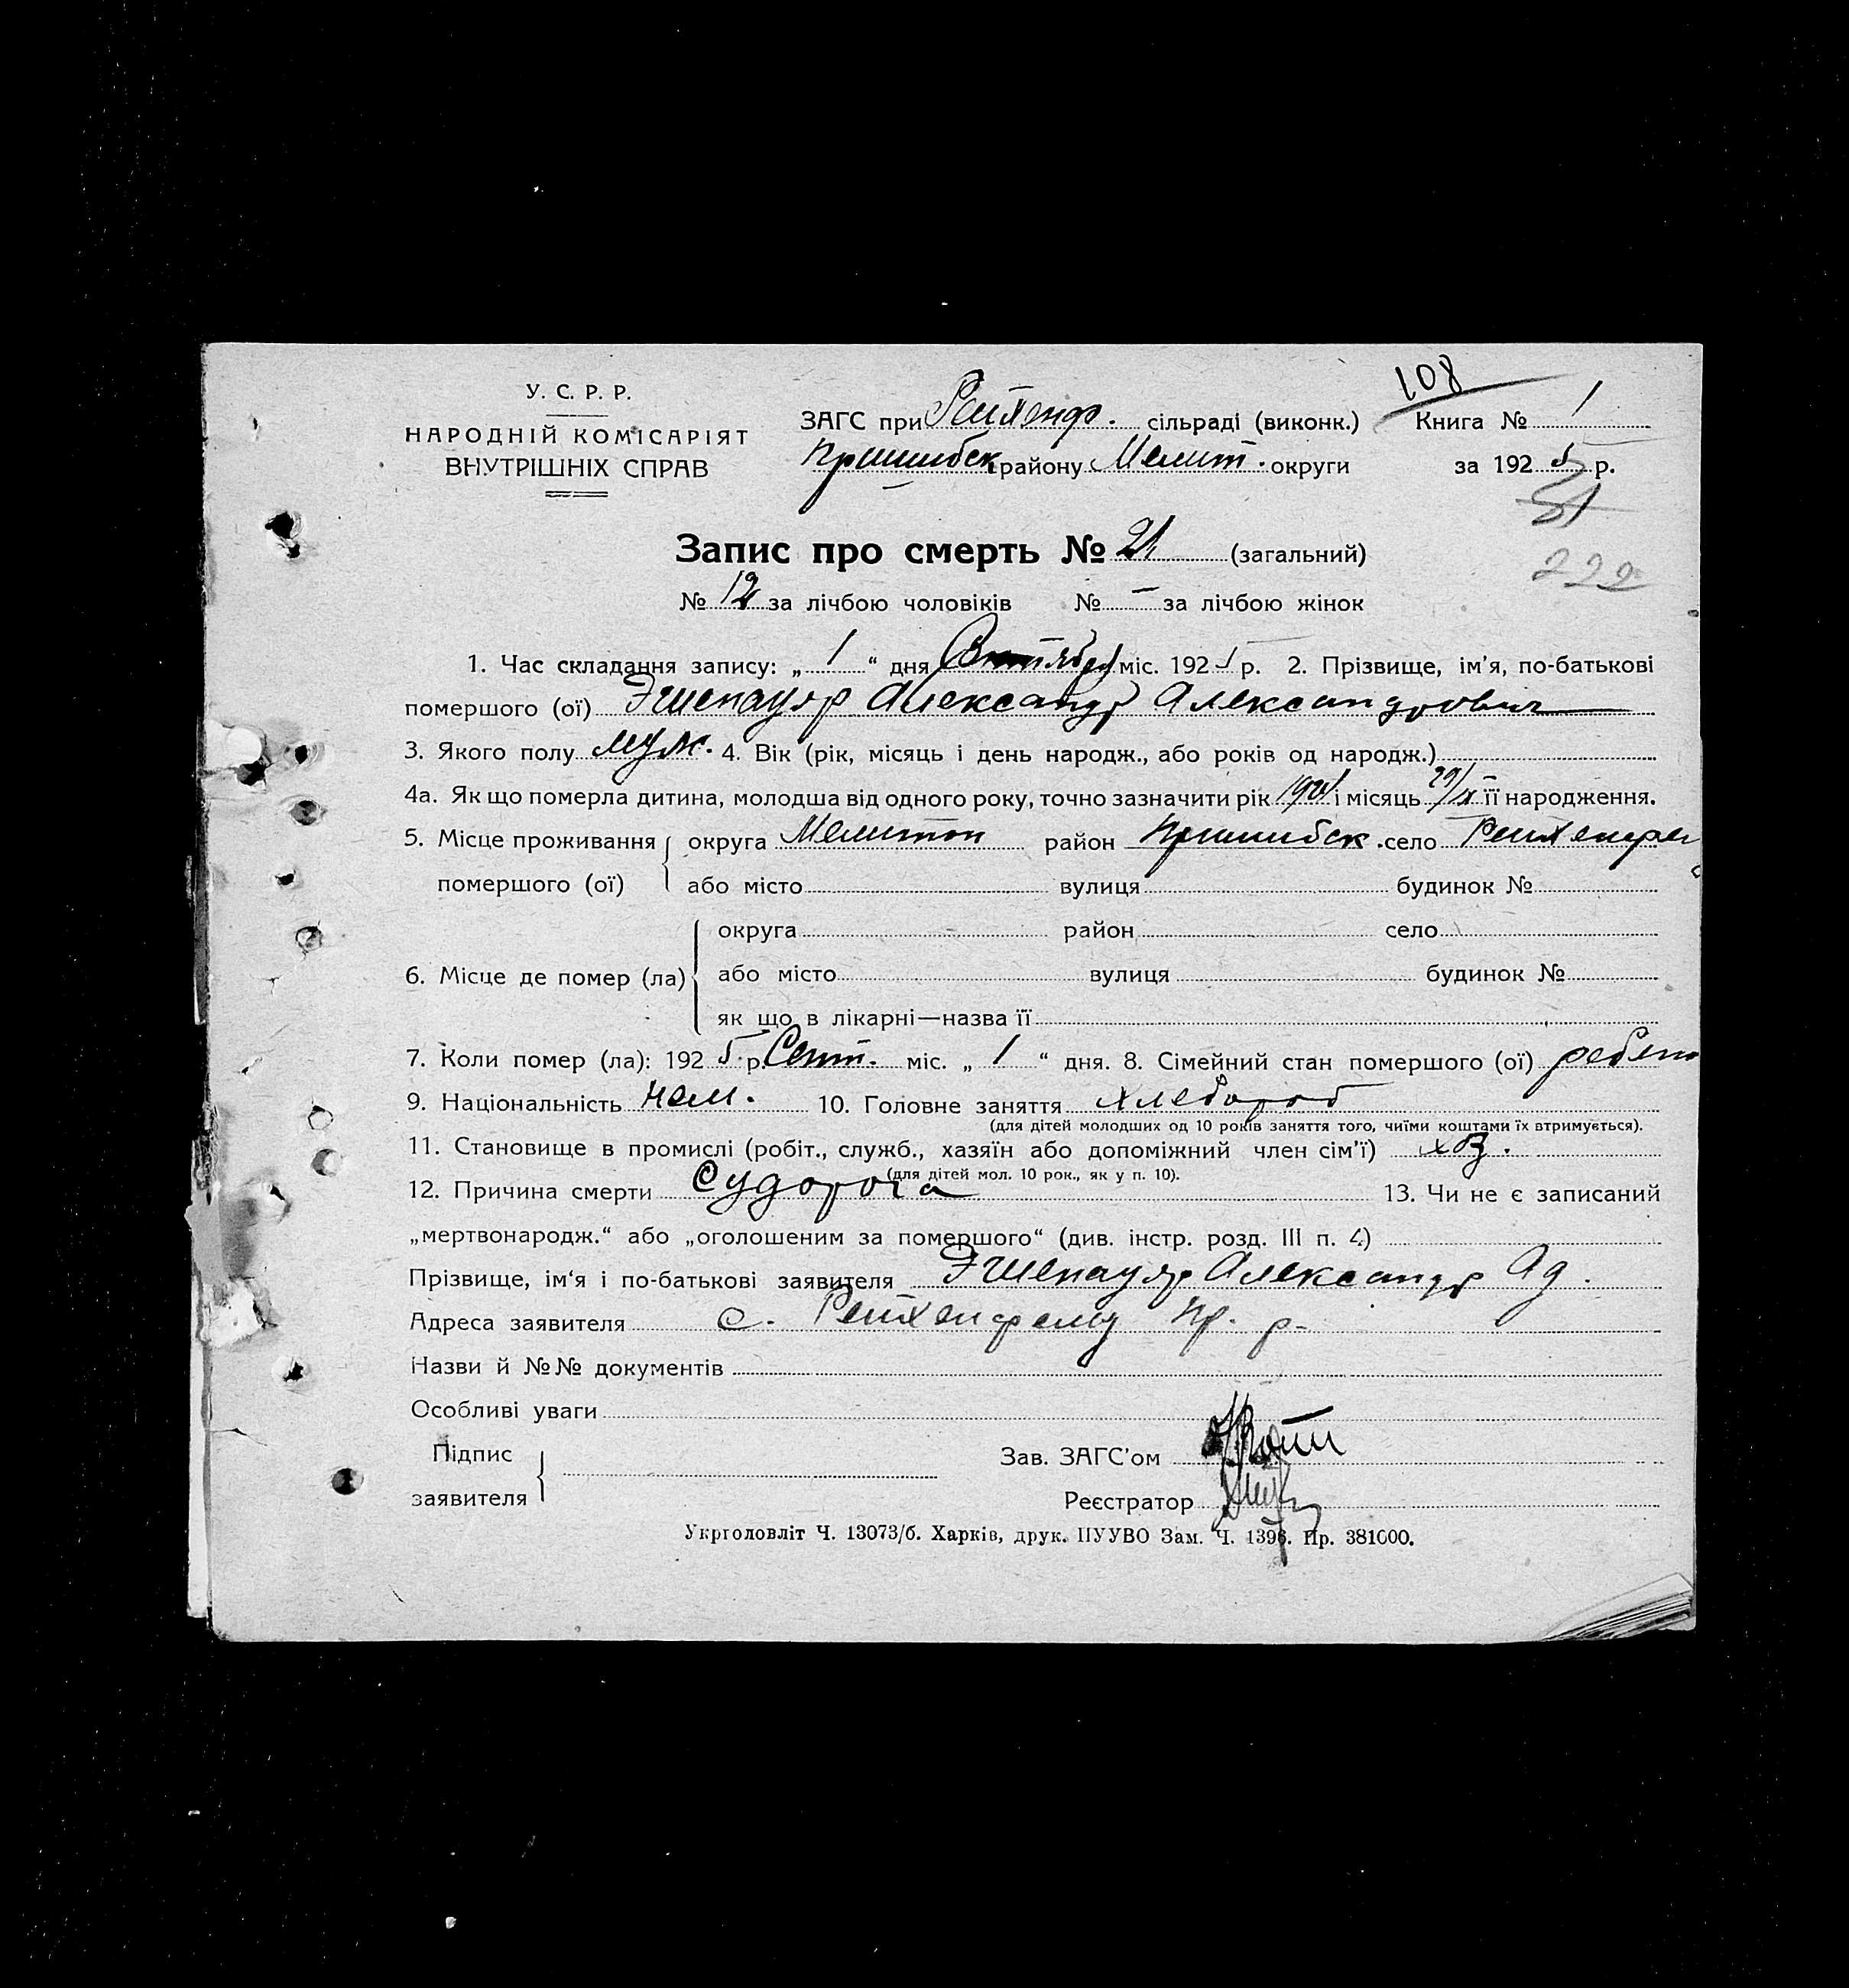 108
У. С. Р. Р.
НАРОДНІЙ КОМІСАРІЯТ
ВНУТРІШНІХ СПРАВ
ЗАГС при Рейхенф. сільраді (виконк.) Книга № 1
Пришибск району Мелит. округи за 1925 р.
51
222
Запис про смерть № 21 (загальний)
№ 12 за лічбою чоловіків № — за лічбою жінок
1. Час складання запису: „ 1 “ дня міс. 1925 р. 2. Прізвище, ім'я, по-батькові
помершого (ої) Эшепауэр Александр Александрович
3. Якого полу муж. 4. Вік (рік, місяць і день народж., або років од народж.)
4а. Як що померла дитина, молодша від одного року, точно зазначити рік і місяць її народження.
5. Місце проживання округа Мелитоп район Пришибск. село Рейхенфел
помершого (ої) або місто вулиця будинок №
округа район село
6. Місце де помер (ла) або місто вулиця будинок №
як що в лікарні—назва її
7. Коли помер (ла): 1925 р. Сент. міс. „ 1 “ дня. 8. Сімейний стан помершого (ої) ребено
9. Національність нем. 10. Головне заняття хлебороб
(для дітей молодших од 10 років заняття того, чиїми коштами їх втримується).
11. Становище в промислі (робіт., служб., хазяїн або допоміжний член сім'ї) хоз.
(для дітей мол. 10 рок., як у п. 10).
12. Причина смерти Судорога 13. Чи не є записаний
„мертвонародж.“ або „оголошеним за помершого“ (див. інстр. розд. III п. 4)
Прізвище, ім'я і по-батькові заявителя Эшепауэр Александр Ад.
Адреса заявителя с. Рейхенфельд Пр. р-
Назви й №№ документів
Особливі уваги
Підпис
заявителя
Зав. ЗАГС'ом
Реєстратор
Укрголовліт Ч. 13073/б. Харків, друк. ПУУВО Зам. Ч. 1396. Пр. 381000.